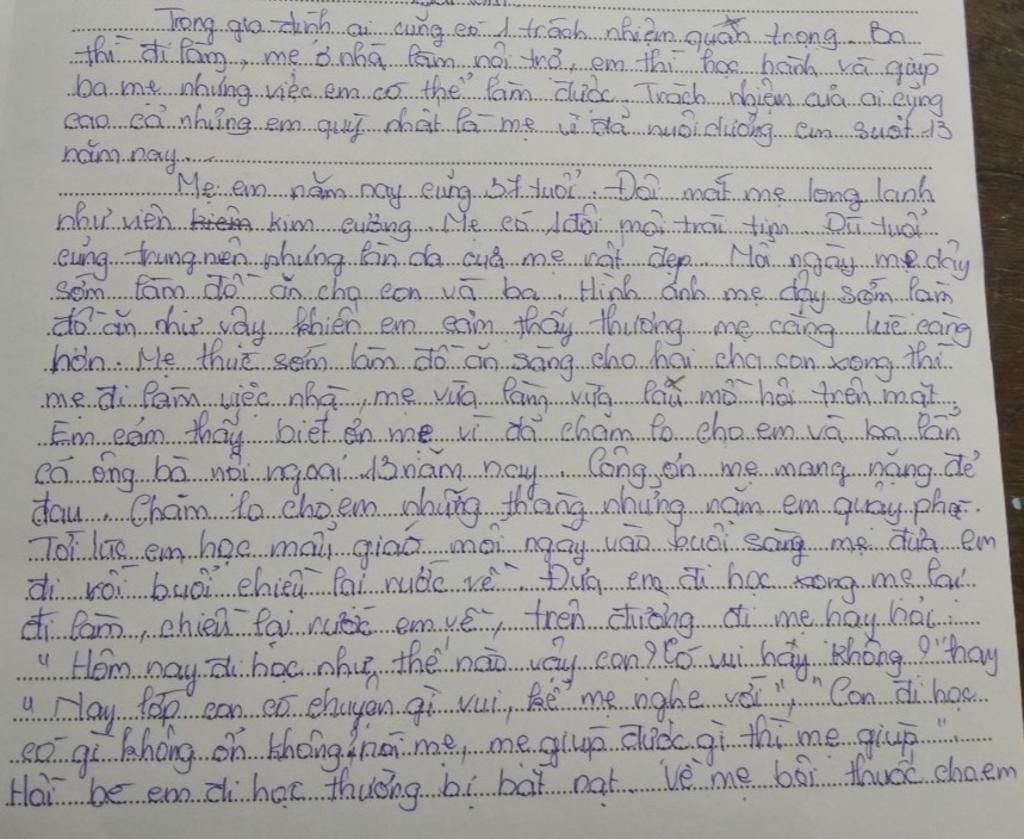 Trong gia đình ai cũng có 1 trách nhiệm quan trọng. Ba
thì đi làm, mẹ ở nhà làm nội trở, em thì học hành và giúp
ba mẹ những việc em có thể làm được. Trách nhiệm của ai cũng
cao cả nhưng em quý nhất là mẹ vì đã nuôi dưỡng em suốt 13
năm nay.
Mẹ em năm nay cũng 37 tuổi. Đôi mắt mẹ long lanh
như viên kim cương. Mẹ có 1 đôi môi trái tim. Dù tuổi
cũng trung niên nhưng làn da của mẹ rất đẹp. Mỗi ngày mẹ dậy
sớm làm đồ ăn cho con và ba. Hình ảnh mẹ dậy sớm làm
đồ ăn như vậy khiến em cảm thấy thương mẹ càng lúc càng
hơn. Mẹ thức sớm làm đồ ăn sáng cho hai cha con xong thì
mẹ đi làm việc nhà, mẹ vừa làm vừa lau mồ hôi trên mặt.
Em cảm thấy biết ơn mẹ vì đã chăm lo cho em và ba lẫn
cả ông bà nội ngoại 13 năm nay. Công ơn mẹ mang nặng đẻ
đau. Chăm lo cho em những tháng những năm em quậy phá.
Tới lúc em học mẫu giáo mỗi ngày vào buổi sáng mẹ đưa em
đi rồi buổi chiều lại rước về. Đưa em đi học xong mẹ lại
đi làm, chiều lại rước em về, trên đường đi mẹ hay hỏi:
"Hôm nay đi học như thế nào vậy con? Có vui hay không?" hay
"Nay lớp con có chuyện gì vui, kể mẹ nghe với", "Con đi học
có gì không ổn không, nói mẹ, mẹ giúp được gì thì mẹ giúp".
Hồi bé em đi học thường bị bắt nạt. Về mẹ bôi thuốc cho em